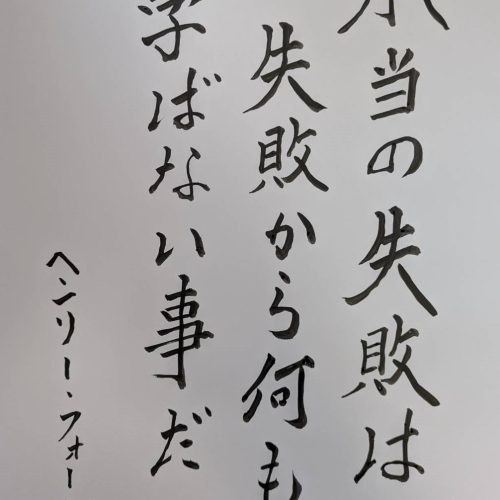 本当の失敗は
失敗から何も
学ばない事だ
ヘンリー・フォー